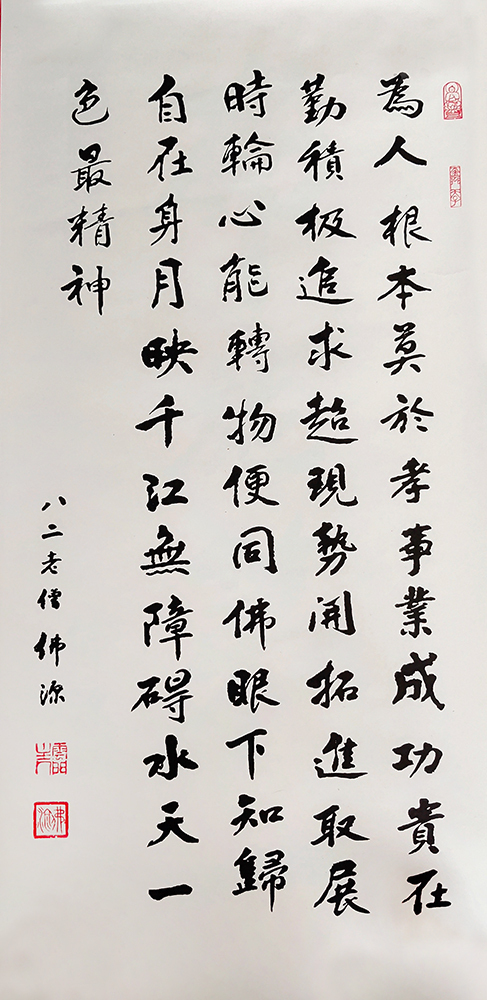 為人根本莫於孝事業成功貴在
勤積极追求超現勢開拓進取展
時輪心能轉物便同佛眼下知歸
自在身月映千江無障碍水天一
色最精神
八二老僧佛源